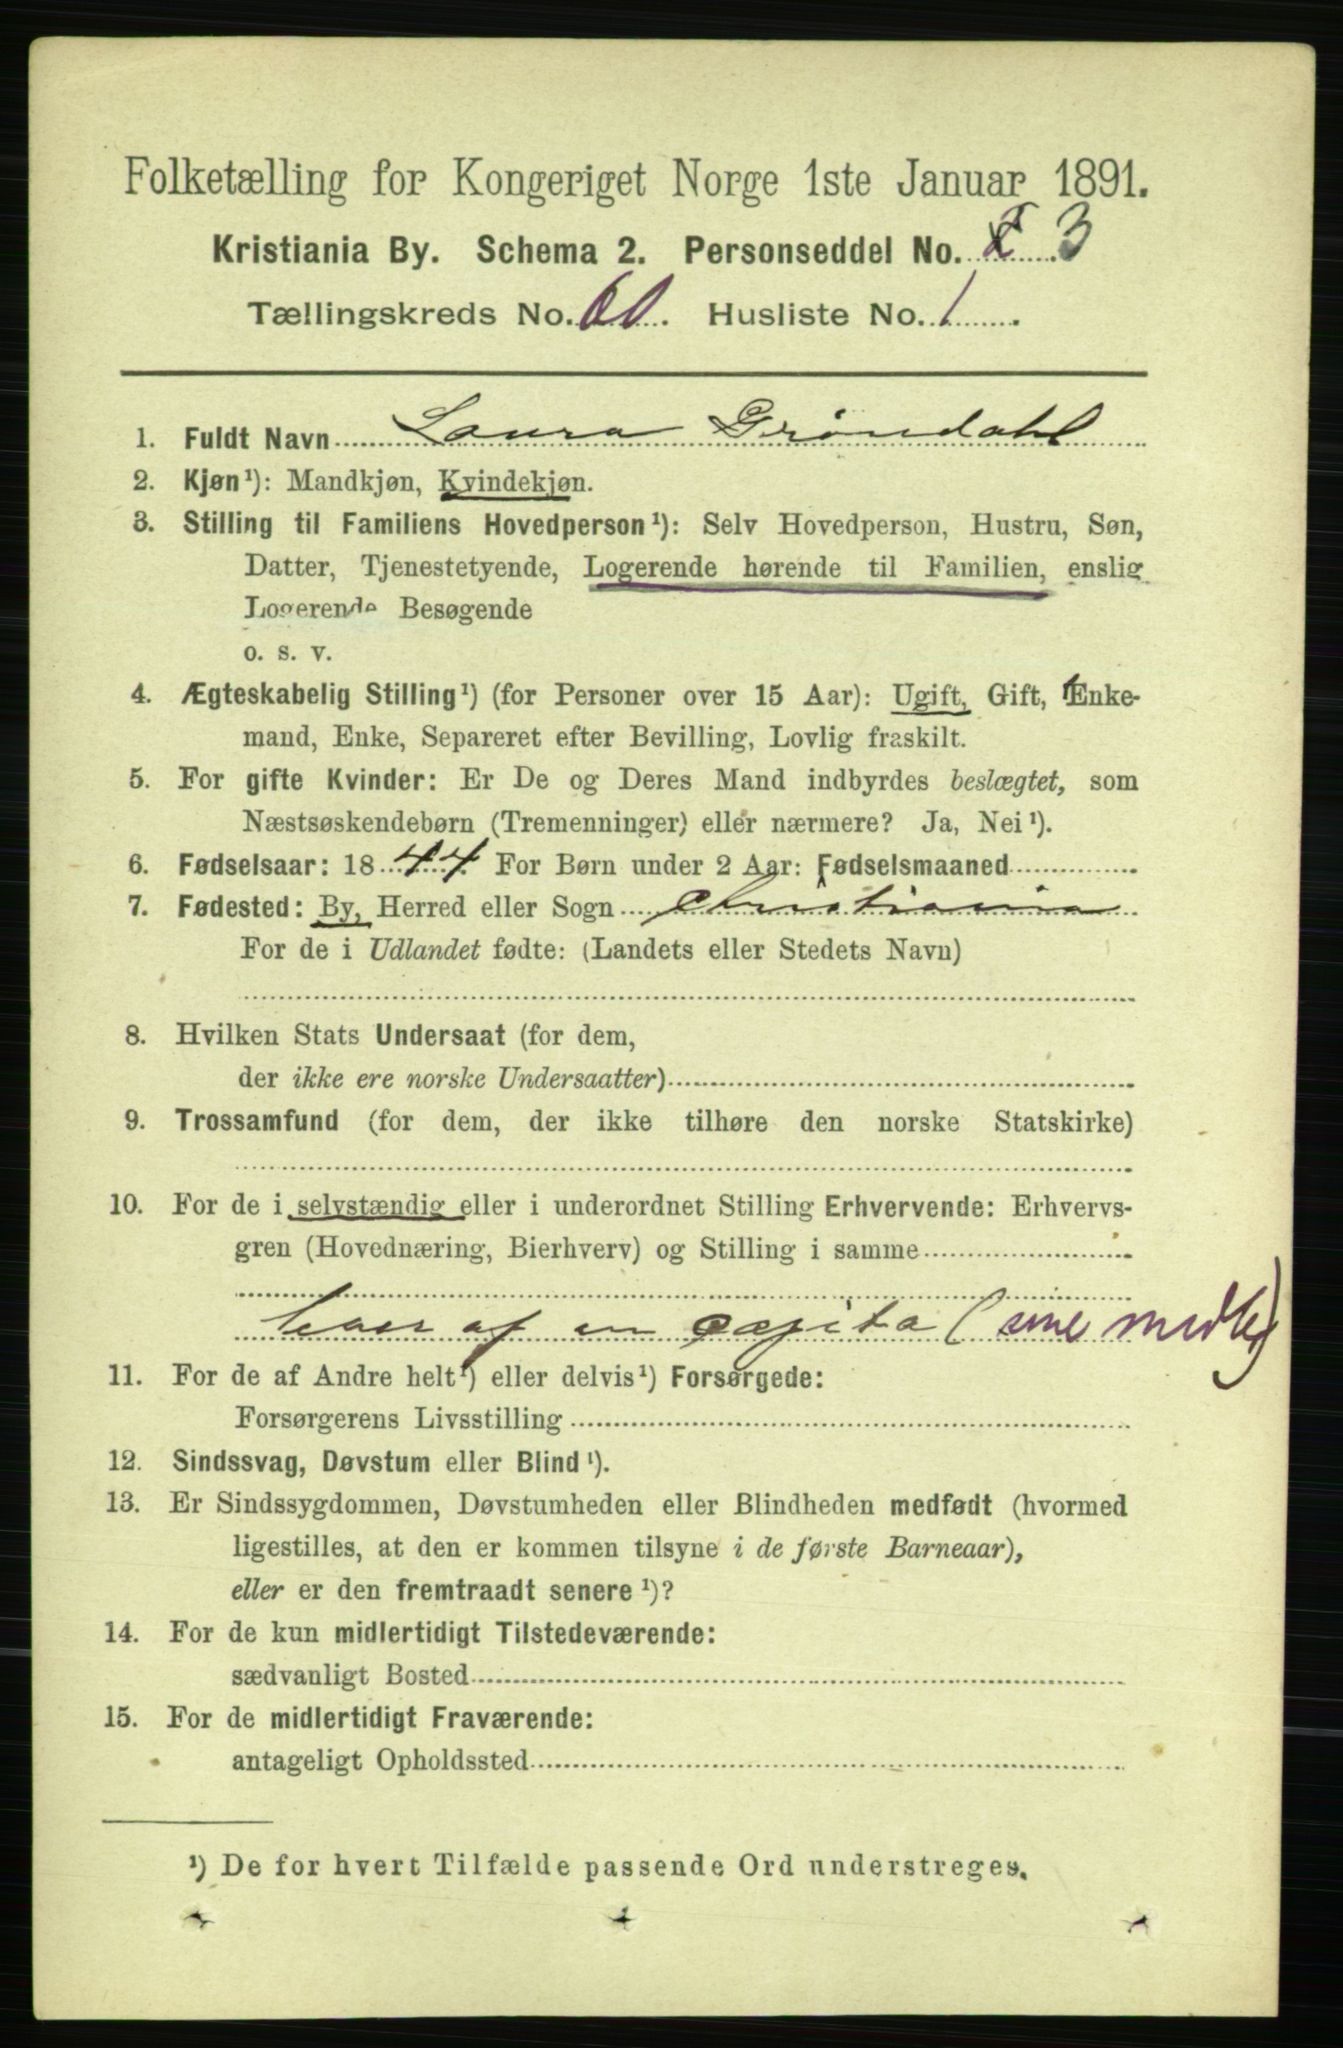 Folketælling for Kongeriget Norge 1ste Januar 1891.
Kristiania By. Schema 2. Personseddel No. 3
Tællingskreds No. 60. Husliste No. 1.
1. Fuldt Navn Laura Grøndahl
2. Kjøn¹): Mandkjøn, Kvindekjøn.
3. Stilling til Familiens Hovedperson¹): Selv Hovedperson, Hustru, Søn,
Datter, Tjenestetyende, Logerende hørende til Familien, enslig
Logerende Besøgende
o. s. v.
4. Ægteskabelig Stilling¹) (for Personer over 15 Aar): Ugift, Gift, Enke-
mand, Enke, Separeret efter Bevilling, Lovlig fraskilt.
5. For gifte Kvinder: Er De og Deres Mand indbyrdes beslægtet, som
Næstsøskendebørn (Tremenninger) eller nærmere? Ja, Nei¹).
6. Fødselsaar: 1844. For Børn under 2 Aar: Fødselsmaaned
7. Fødested: By, Herred eller Sogn Christiania
For de i Udlandet fødte: (Landets eller Stedets Navn)
8. Hvilken Stats Undersaat (for dem,
der ikke ere norske Undersaatter)
9. Trossamfund (for dem, der ikke tilhøre den norske Statskirke)
10. For de i selvstændig eller i underordnet Stilling Erhvervende: Erhvervs-
gren (Hovednæring, Bierhverv) og Stilling i samme
lever af en capita (sine midler)
11. For de af Andre helt¹) eller delvis¹) Forsørgede:
Forsørgerens Livsstilling
12. Sindssvag, Døvstum eller Blind¹).
13. Er Sindssygdommen, Døvstumheden eller Blindheden medfødt (hvormed
ligestilles, at den er kommen tilsyne i de første Barneaar),
eller er den fremtraadt senere¹)?
14. For de kun midlertidigt Tilstedeværende:
sædvanligt Bosted
15. For de midlertidigt Fraværende:
antageligt Opholdssted
¹) De for hvert Tilfælde passende Ord understreges.